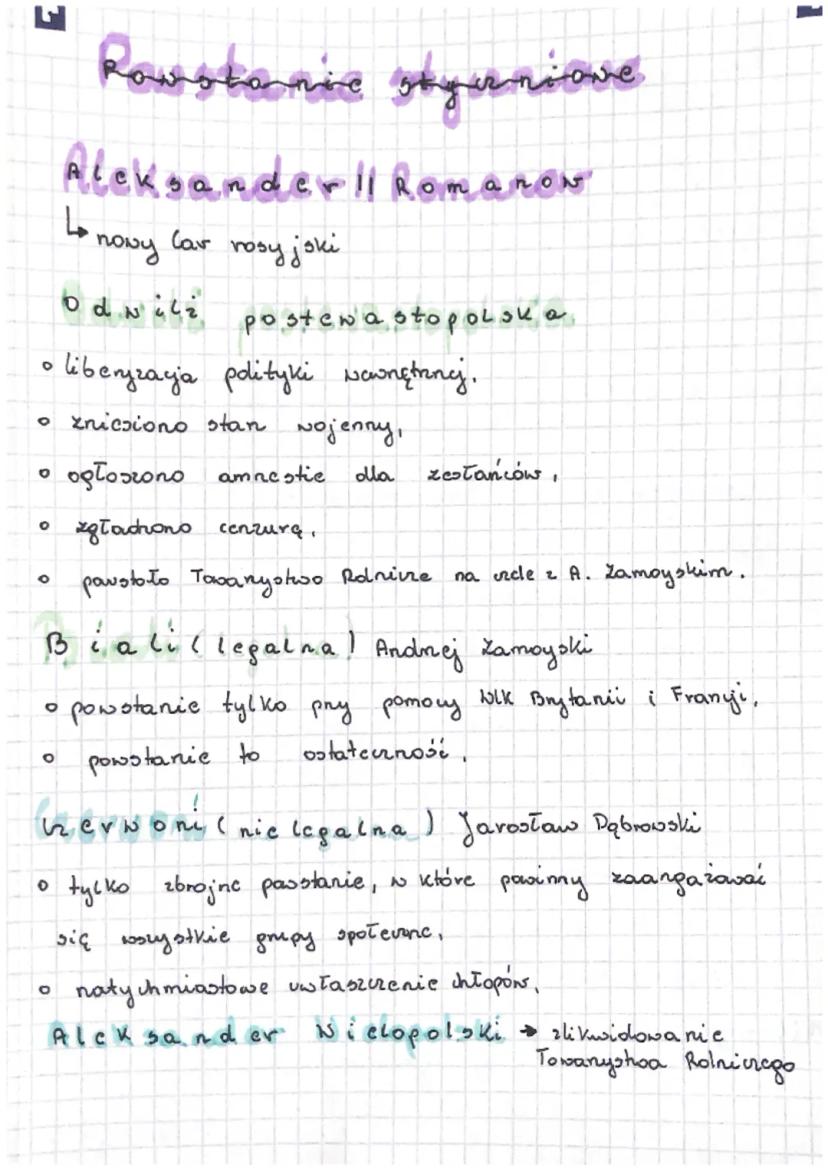 Powstanie styczniowe
Aleksander II Romanow
↳ nowy Car rosyjski
Odwilż postsewastopolska
• liberyzacja polityki wewnętrznej,
• zniesiono stan wojenny,
• ogłoszono amnestie dla zesłańców,
• złagodzono cenzurę,
• powstało Towarzystwo Rolnicze na czele z A. Zamoyskim.
Biali (legalna) Andrzej Zamoyski
• powstanie tylko przy pomocy Wlk Brytanii i Francji,
• powstanie to ostateczność,
Czerwoni (nie legalna) Jarosław Dąbrowski
• tylko zbrojne powstanie, w które powinny zaangażować
się wszystkie grupy społeczne,
• natychmiastowe uwłaszczenie chłopów,
Aleksander Wielopolski → zlikwidowanie
Towarzystwa Rolniczego